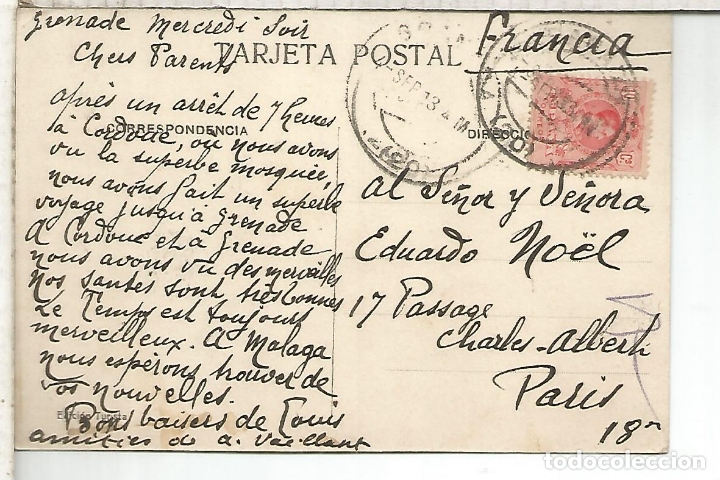 Grenade Mercredi Soir
Chers Parents
TARJETA POSTAL
CORRESPONDENCIA
Après un arrêt de 7 heures
à Cordoue, où nous avons
vu la superbe mosquée,
nous avons fait un superbe
voyage jusqu'à Grenade
A Cordoue et à Grenade
nous avons vu des merveilles
Nos santés sont très bonnes
Le Temps est toujours
merveilleux. A Malaga
nous espérons trouver de
vos nouvelles.
Bons baisers de Louis
amitiés de A. Vaillant
Edición Turista
Francia
DIRECCIÓN
SEP 13
Al Señor y Señora
Eduardo Noël
17 Passage
Charles-Albert
Paris
18e
todocoleccion.net